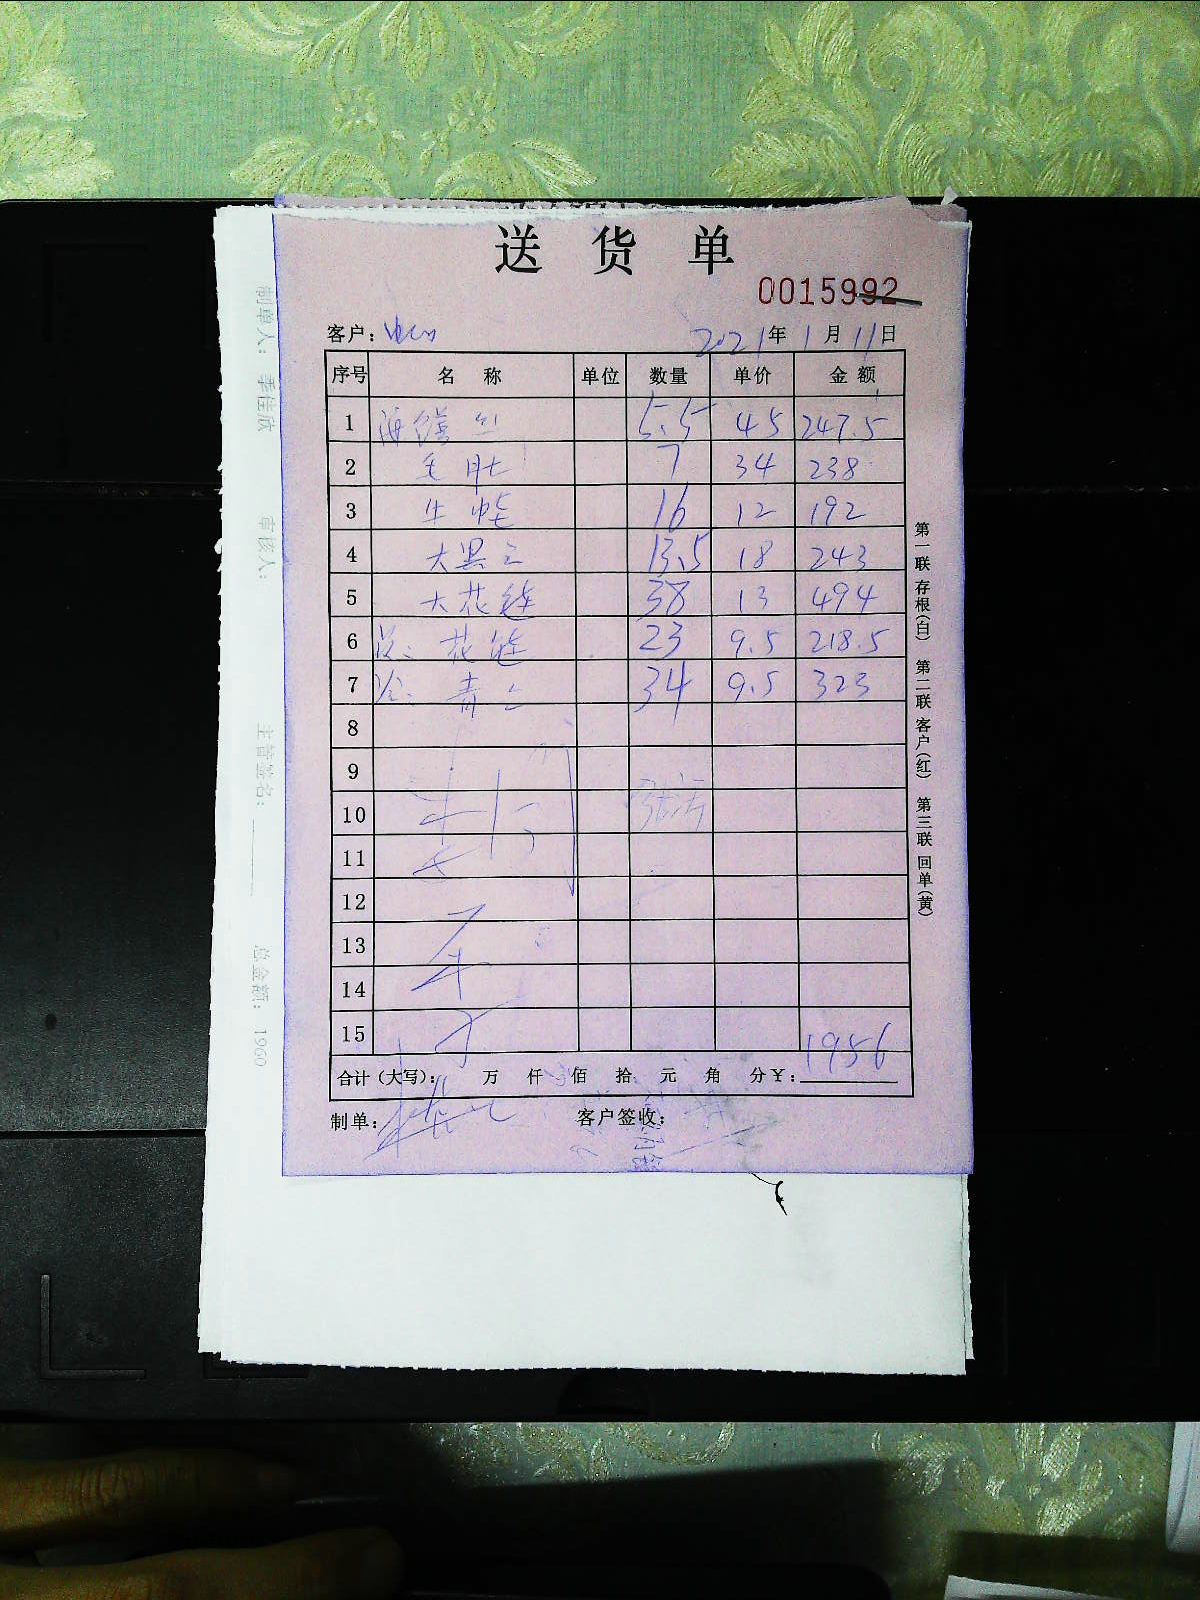 送货单
0015992
客户: 2021年1月11日
序号 名称 单位 数量 单价 金额
1 5.5 45 247.5
2 毛肚 7 34 238
3 牛 16 12 192
4 大 13.5 18 243
5 大花鲢 38 13 494
6 花鲢 23 9.5 218.5
7 青 34 9.5 323
8
9
10
11
12
13
14
15
合计(大写): 万 仟 佰 拾 元 角 分¥: 1956
制单: 客户签收:
第一联 存根(白) 第二联 客户(红) 第三联 回单(黄)
制单人: 季佳欣 审核人: 主管签名: 总金额: 1960